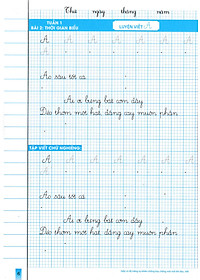 Thứ ngày tháng năm
TUẦN 1
BÀI 2: THỜI GIAN BIỂU
LUYỆN VIẾT A
A A A A A A A
A
Ao sâu tốt cá.
Ai ơi bưng bát cơm đầy
Dẻo thơm một hạt, đắng cay muôn phần.
TẬP VIẾT CHỮ NGHIÊNG:
A A A A A A A
A
Ao sâu tốt cá.
Ai ơi bưng bát cơm đầy
Dẻo thơm một hạt, đắng cay muôn phần.